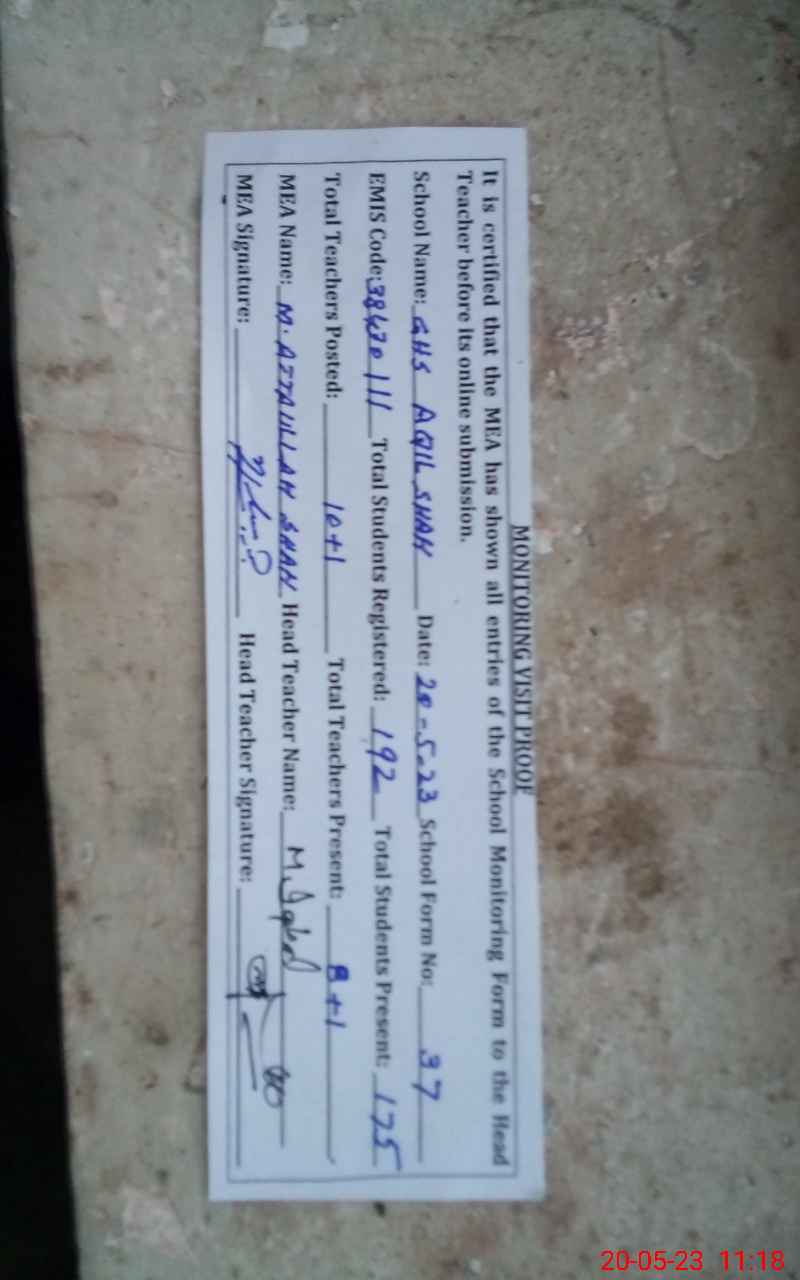 MONITORING VISIT PROOF
It is certified that the MEA has shown all entries of the School Monitoring Form to the Head
Teacher before its online submission.
School Name: GHS AQIL SHAH Date: 20-5-23 School Form No: 37
EMIS Code: 38470111 Total Students Registered: 192 Total Students Present: 175
Total Teachers Posted: 10+1 Total Teachers Present: 8+1
MEA Name: M. ATTAULLAH SHAH Head Teacher Name: M. Iqbal
MEA Signature: Head Teacher Signature:
20-05-23 11:18